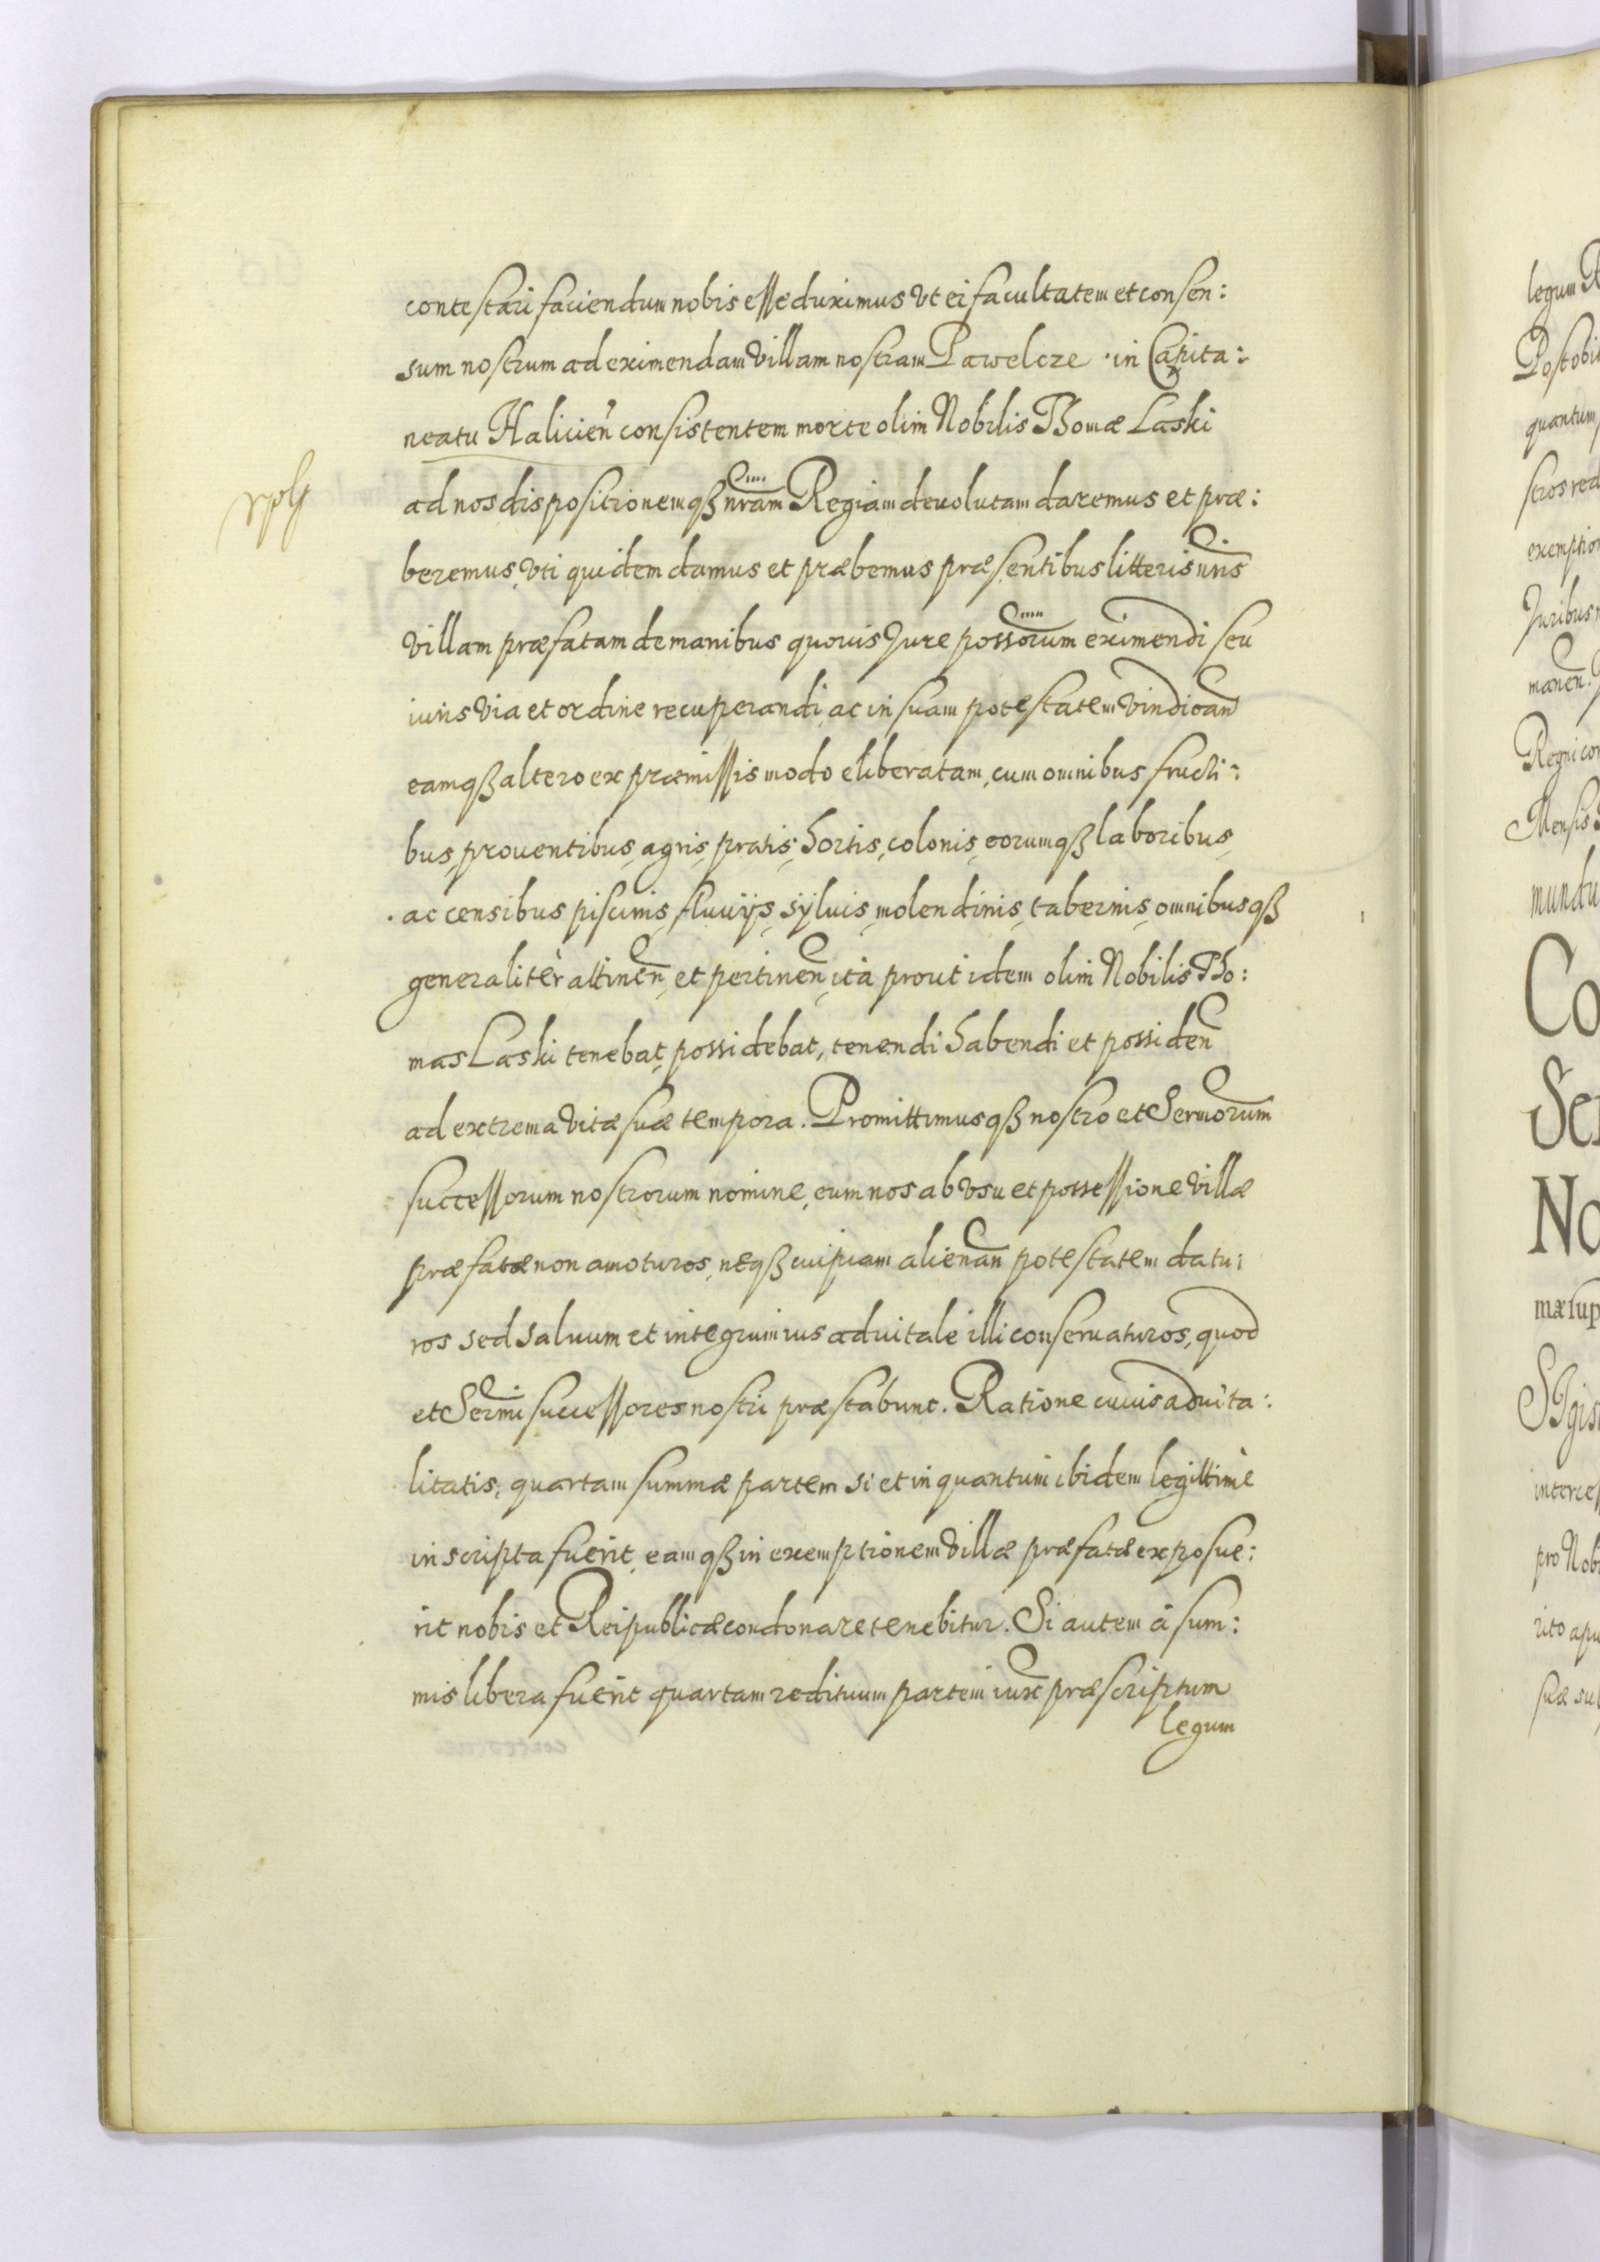 contestari faciendum nobis esse duximus vt ei facultatem et consen:
sum nostrum ad eximendam villam nostram Pawelcze in Capita:
neatu Halicień consistentem morte olim Nobilis Thomæ Laski
ad nos dispositionemqß nram Regiam deuolutam daremus et præ:
beremus, vti quidem damus et præbemus præsentibus litteris nris
villam præfatam de manibus quouis Jure possorum eximendi seu
iuris via et ordine recuperandi, ac in suam potestatem vindican
eamqß altero ex præmissis modo eliberatam, cum omnibus fructi:
bus, prouentibus, agris, pratis, hortis, colonis, eorumqß laboribus,
ac censibus piscinis, fluuijs, syluis, molendinis, tabernis, omnibusqß
generalitèr attinen, et pertinen, ità prout idem olim Nobilis Tho:
mas Laski tenebat, possidebat, tenendi habendi et possiden
ad extrema vitæ suæ tempora. Promittimusqß nostro et Sermorum
successorum nostrorum nomine, eum nos ab vsu et possessione villæ
præfatæ non amoturos, neqß cuipiam alienan potestatem datu:
ros sed saluum et integrum ius aduitale illi conseruaturos, quod
et Sermi successores nostri præstabunt. Ratione cuius aduita:
litatis, quartam summæ partem si et inquantum ibidem legittimè
inscripta fuerit, eamqß in exemptionem villæ præfatæ exposue:
rit nobis et Reipublicæ condonare tenebitur. Si autem à sum:
mis libera fuerit quartam redituum partem iux præscriptum
legum
legum